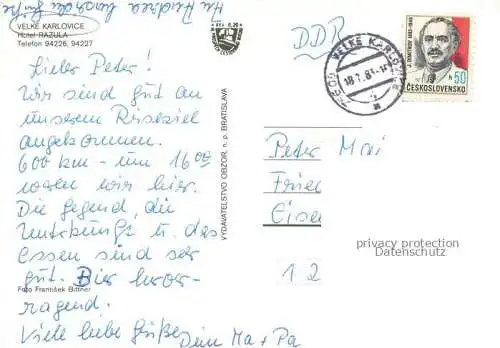 VELKÉ KARLOVICE
Hotel RAZULA
Telefon 94226, 94227
Kčs 0,30
Lieber Peter!
Wir sind gut an
unserem Reiseziel
angekommen.
600 km - um 16⁰⁰
waren wir hier.
Die Gegend, die
Unterkunft u. das
Essen sind sehr
gut. Bier hervor-
ragend!
Foto František Bittner
Viele liebe Grüße
Dein Ma + Pa
VYDAVATELSTVO OBZOR, n. p. BRATISLAVA
DDR
VELKÉ KARLOVICE
18.7.83
J. DIMITROV 1882-1949
50 h
ČESKOSLOVENSKO
Peter Mai
Frie
Eise
12
privacy protection
Datenschutz